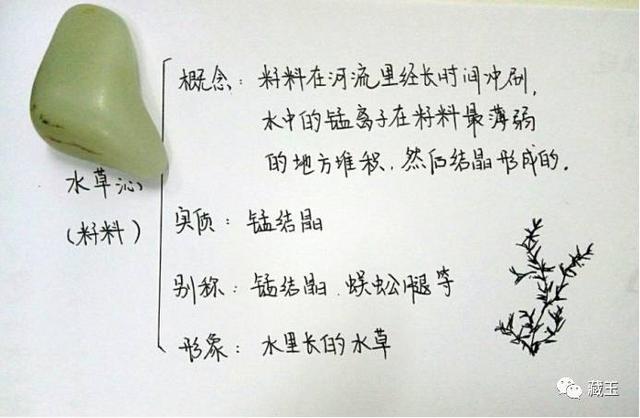 水草沁
(籽料)
概念：籽料在河流里经长时间冲刷，
水中的锰离子在籽料最薄弱
的地方堆积，然后结晶形成的．
实质：锰结晶
别称：锰结晶、蜈蚣腿等
形象：水里长的水草
藏玉